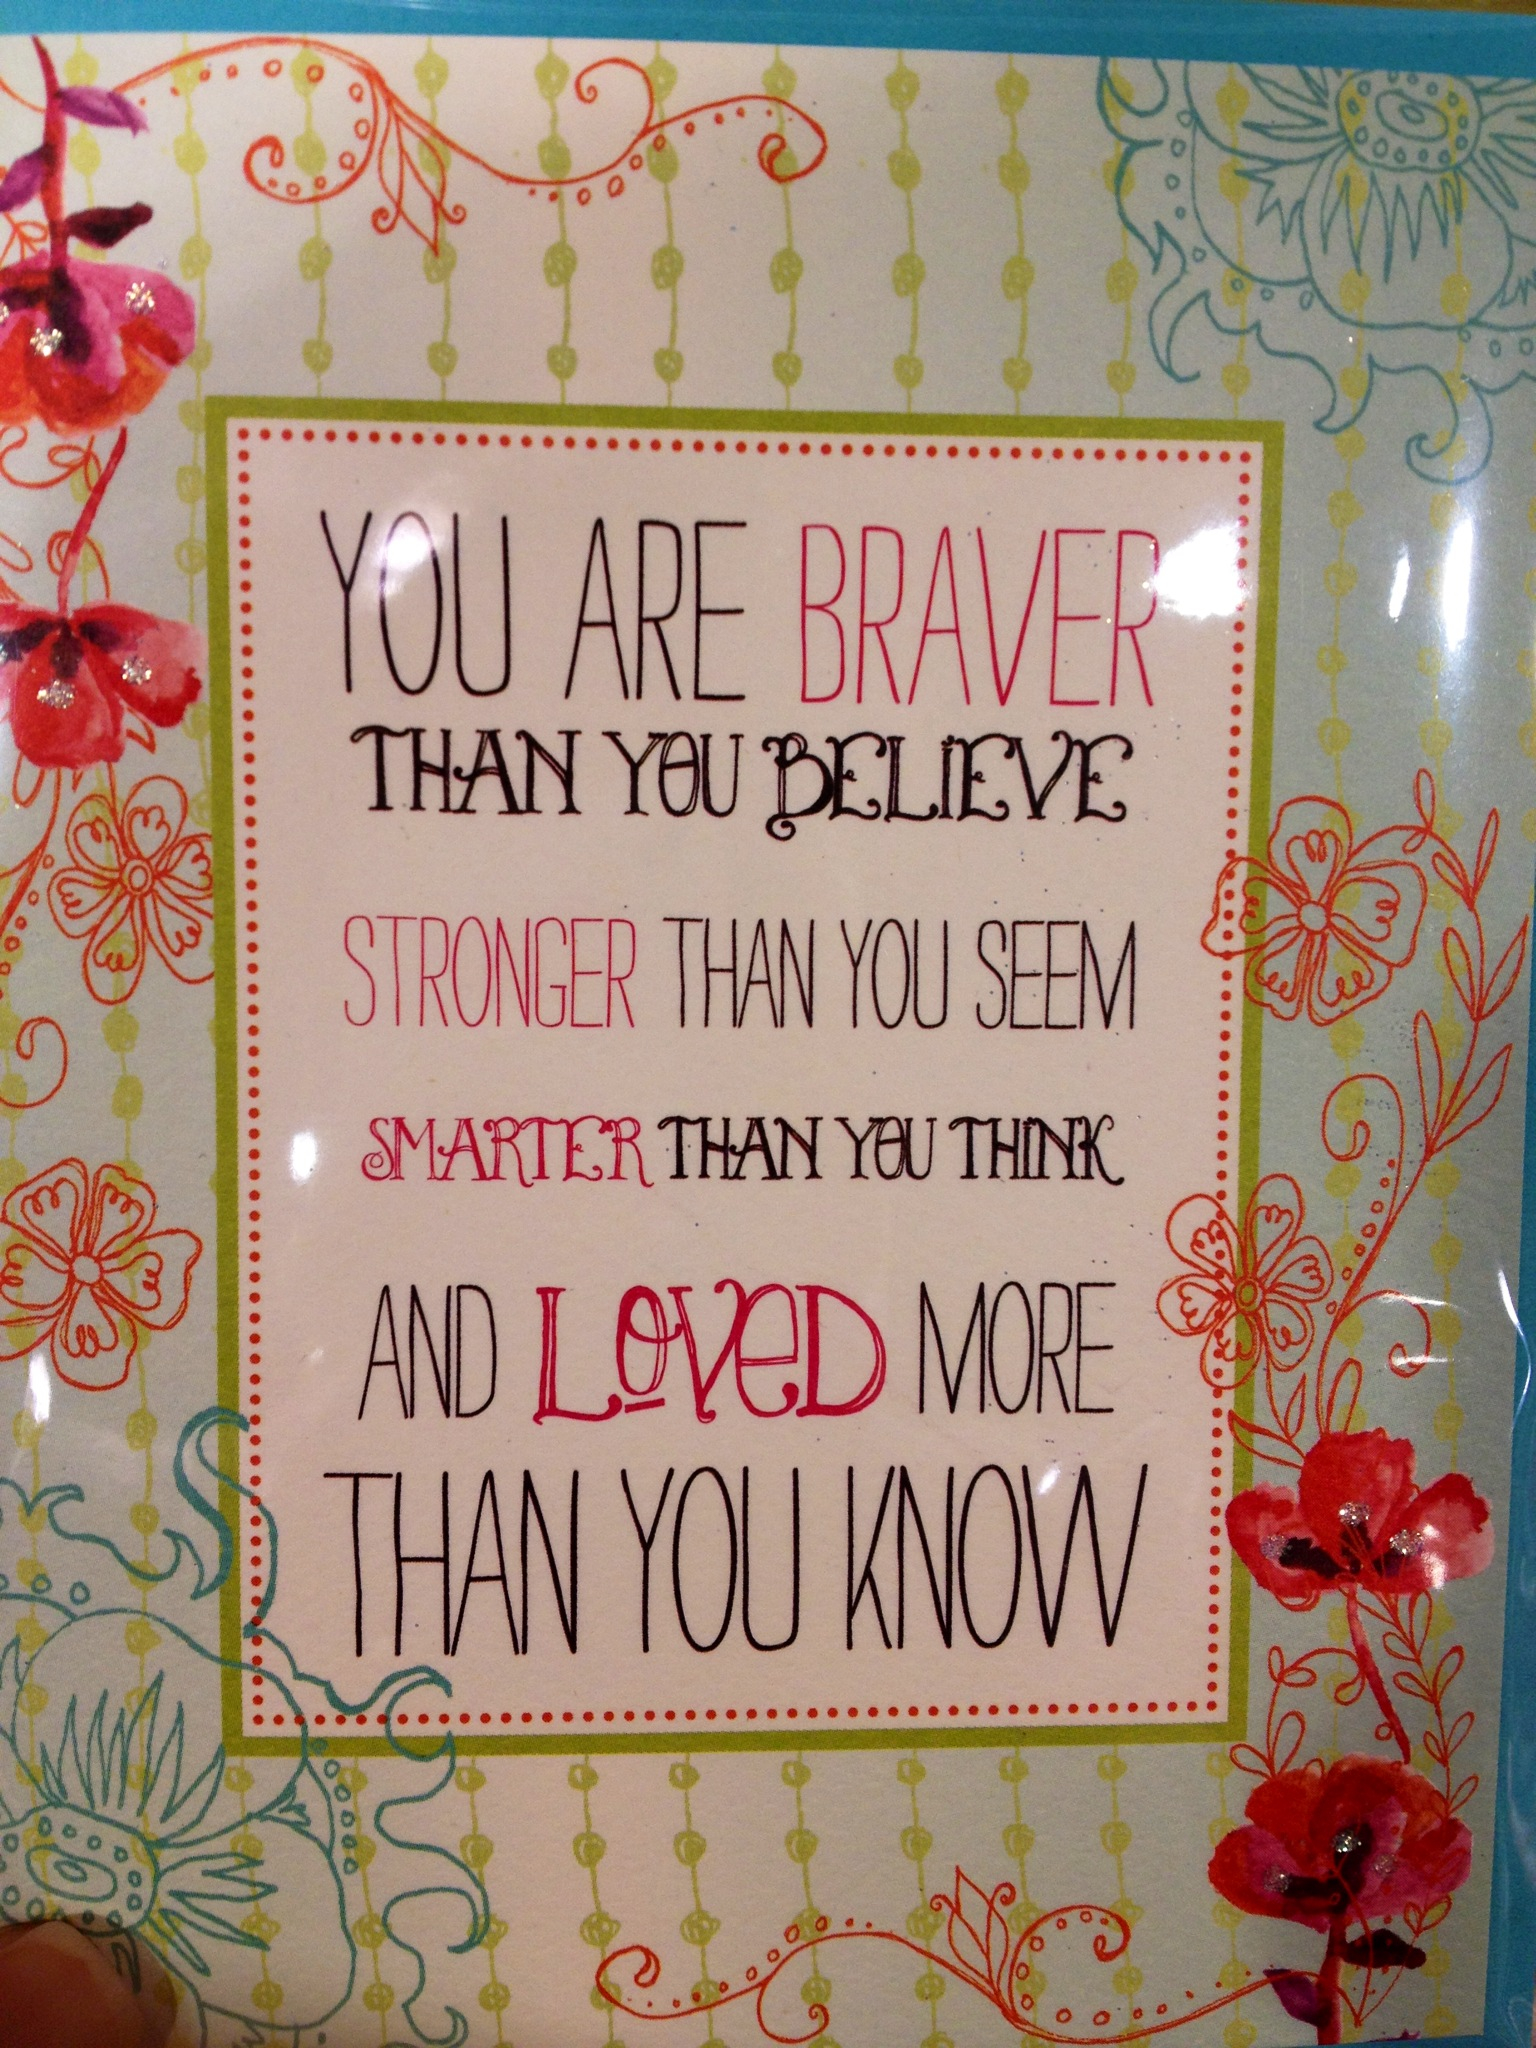 YOU ARE BRAVER
THAN YOU BELIEVE
STRONGER THAN YOU SEEM
SMARTER THAN YOU THINK
AND LOVED MORE
THAN YOU KNOW